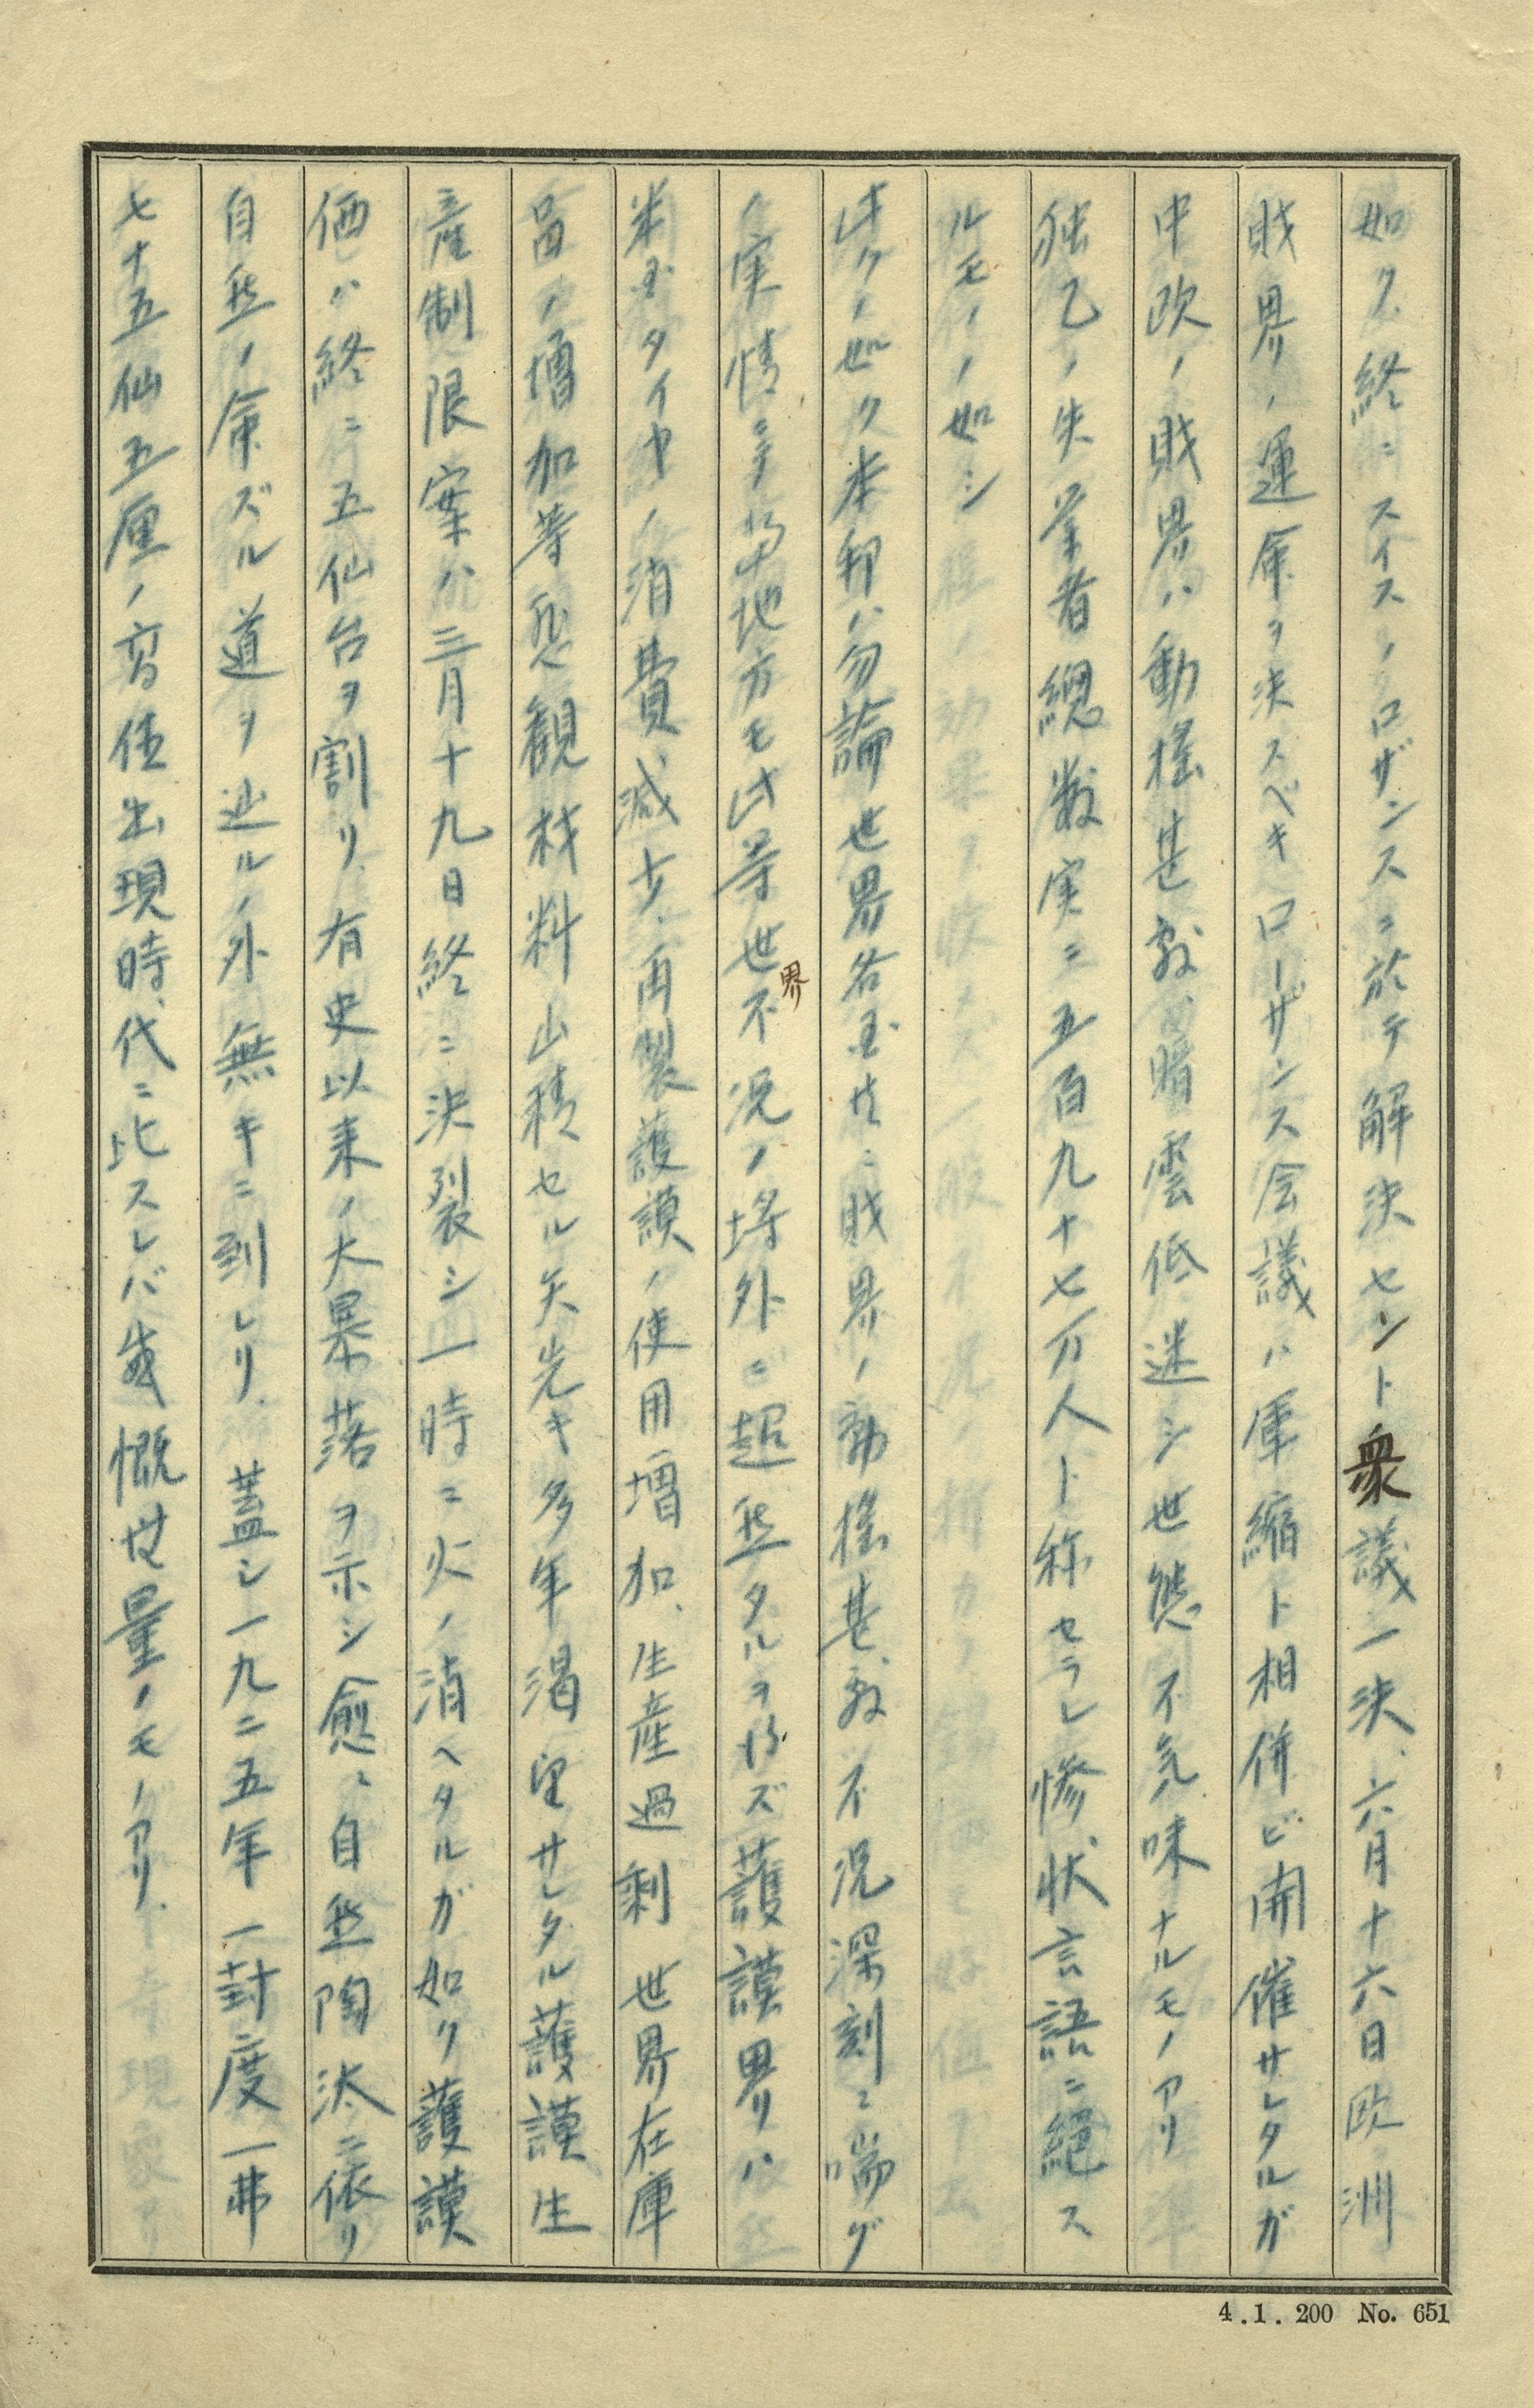 如ク終ニスイスノロザンスニ於テ解決セント衆議一決、六月十六日欧洲
財界ノ運命ヲ決スベキローザンス会議ハ軍縮ト相併ビ開催サレタルガ
中欧ノ財界ハ動揺甚敷暗雲低迷シ世態不気味ナルモノアリ
独乙ノ失業者総数実ニ五百九十七万人ト称セラレ惨状言語ニ絶ス
ルモノノ如シ
此クノ如ク本邦ハ勿論世界各国共ニ財界ノ動揺甚敷不況深刻ニ喘グ
ノ実情ニテ当地方モ此等世界不況ノ埒外ニ超然タルヲ得ズ護謨界ハ
米国タイヤノ消費減少、再製護謨ノ使用増加、生産過剰世界在庫
品ノ増加等悲観材料山積セル矢先キ多年渇望サレタル護謨生
産制限案ハ三月十九日終ニ決裂シ一時ニ火ノ消ヘタルガ如ク護謨
価ハ終ニ五仙台ヲ割リ有史以来ノ大暴落ヲ示シ愈々自然陶汰ニ依リ
自然ノ命ズル道ヲ辿ルノ外無キニ到レリ、蓋シ一九二五年一封度一弗
七十五仙五厘ノ高値出現時代ニ比スレバ感慨無量ノモノアリ、
4.1.200 No. 651